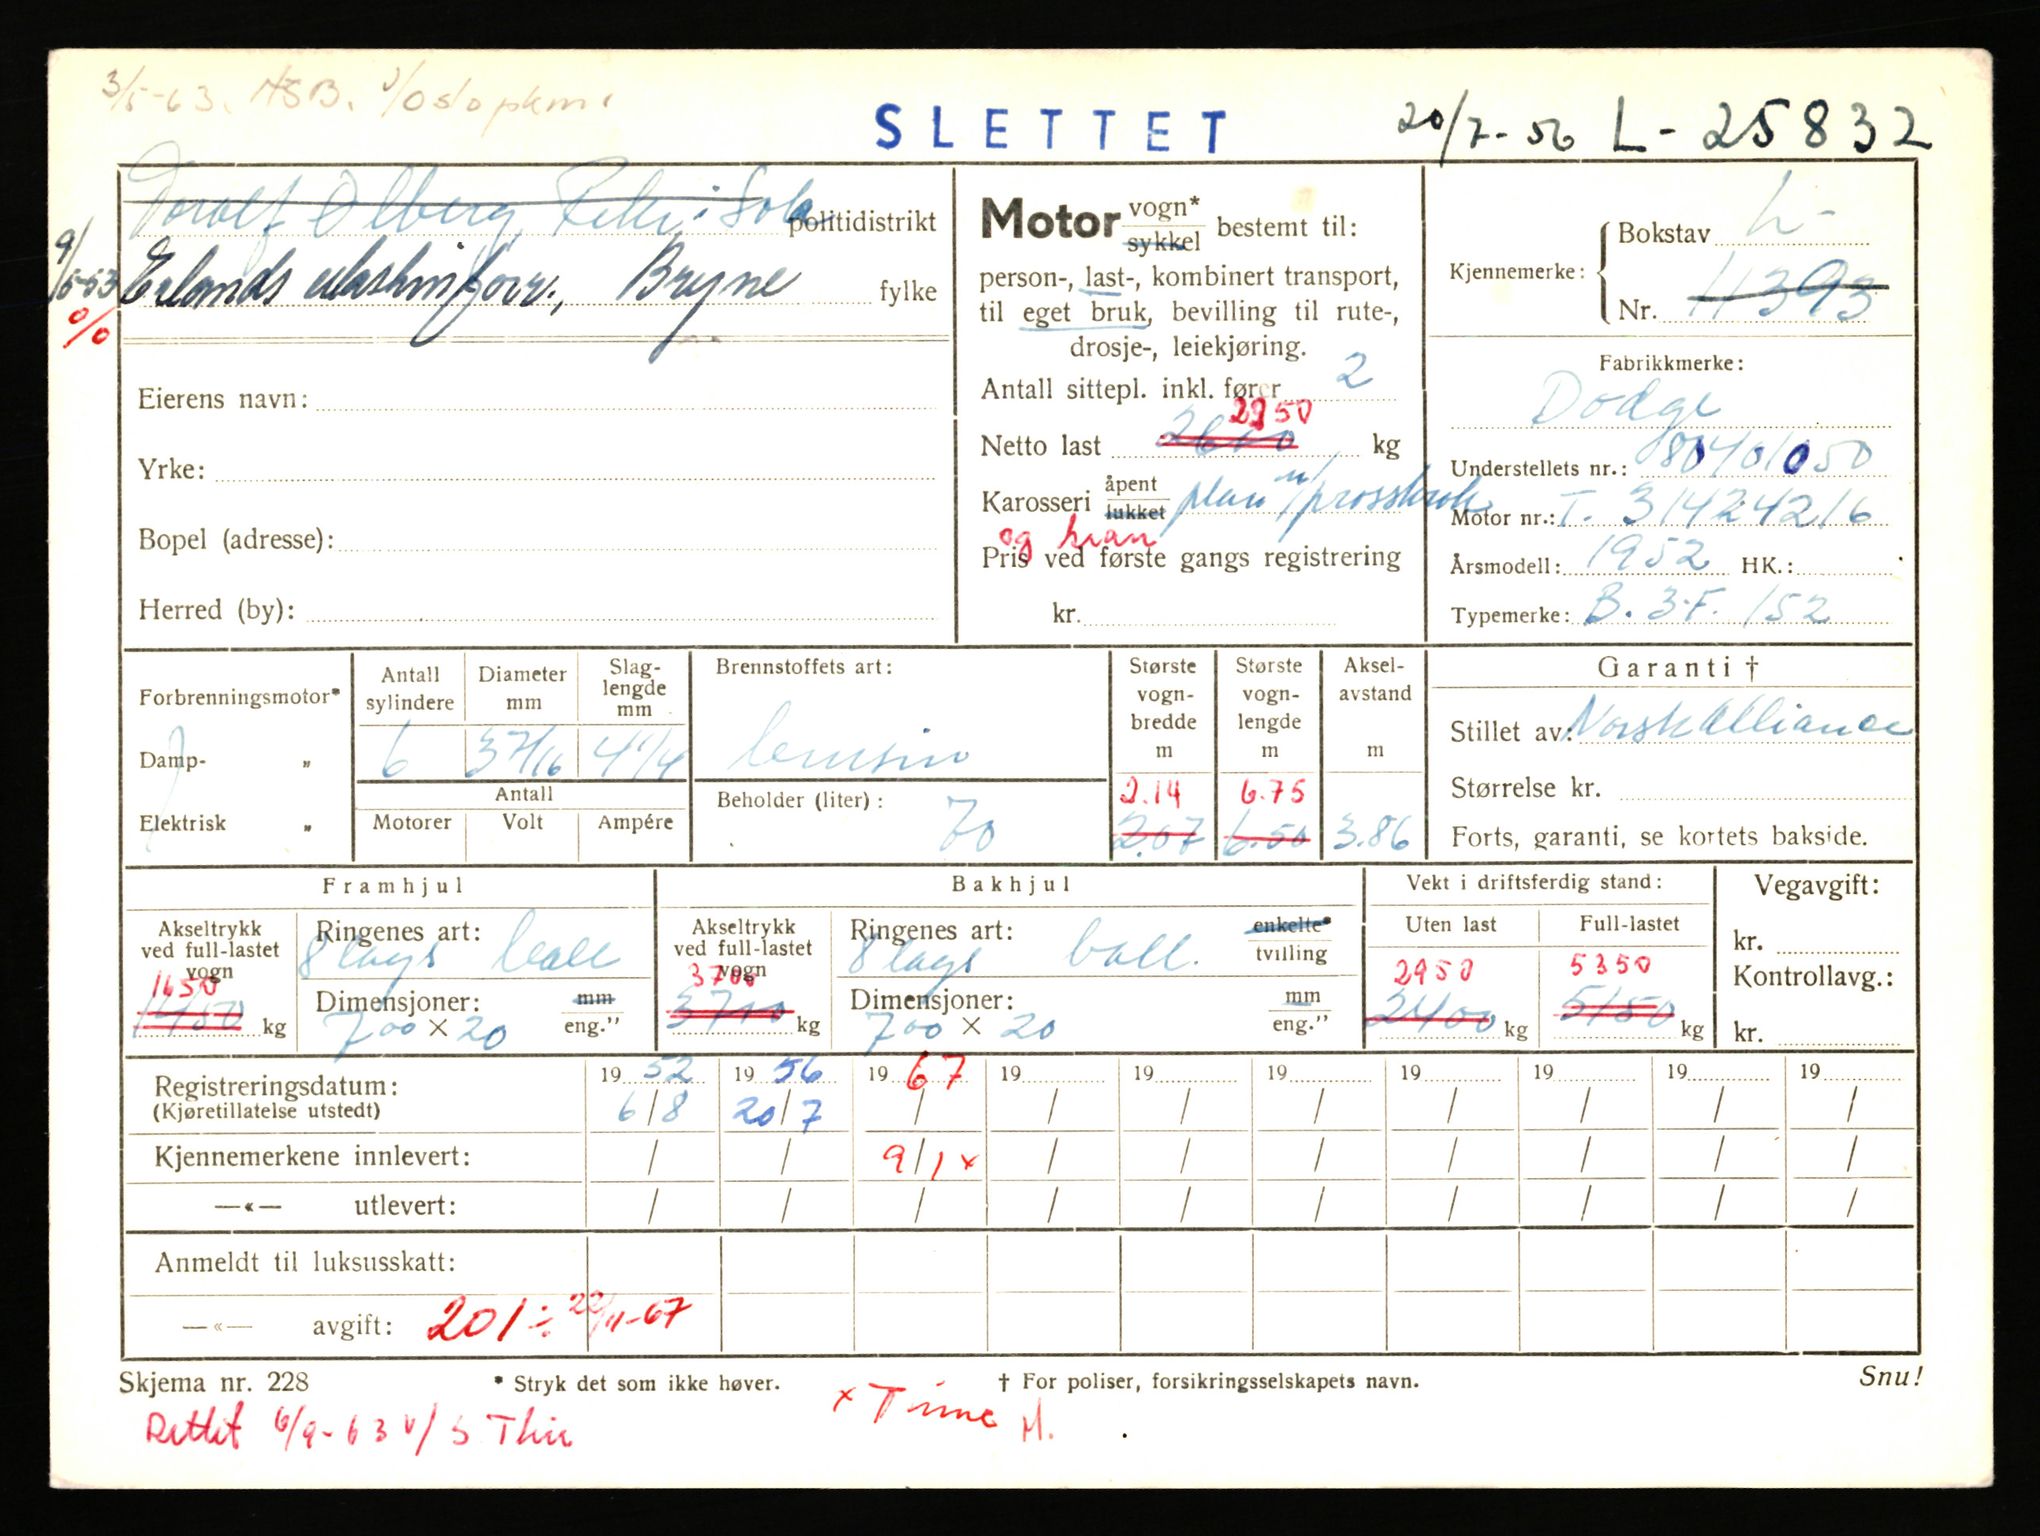 3/5-63. NSB. v/Oslo pkm.
SLETTET
20/7-56 L-25832
Toralf Olberg, Reke i Sola
politidistrikt
9/5-53
Erlands Maskinforr., Bryne
fylke
0/0
Eierens navn:
Yrke:
Bopel (adresse):
Herred (by):
Motor vogn* sykkel bestemt til:
person-, last-, kombinert transport,
til eget bruk, bevilling til rute-,
drosje-, leiekjøring.
Antall sittepl. inkl. fører 2
2250
Netto last kg
Karosseri åpent lukket plan m/
og kran
Pris ved første gangs registrering
kr.
Kjennemerke: Bokstav L-
Nr. 4393
Fabrikkmerke:
Dodge
Understellets nr.: 80401050
Motor nr.: T. 31424216
Årsmodell: 1952 HK.:
Typemerke: B.3.F. 152
Forbrenningsmotor*
Damp- „
Elektrisk „
Antall sylindere 6
Diameter mm 37/16
Slag-lengde mm 41/4
Antall
Motorer Volt Ampére
Brennstoffets art:
bensin
Beholder (liter): 70
Største vogn-bredde m 2.14 2.07
Største vogn-lengde m 6.75 6.50
Aksel-avstand m 3.86
Garanti †
Stillet av: Norsk Alliance
Størrelse kr.
Forts, garanti, se kortets bakside.
Framhjul
Akseltrykk ved full-lastet vogn
1650
1450 kg
Ringenes art:
8 lags ball
Dimensjoner: mm eng.”
700 × 20
Bakhjul
Akseltrykk ved full-lastet vogn
3700
3710 kg
Ringenes art: enkelte* tvilling
8 lags ball.
Dimensjoner: mm eng.”
700 × 20
Vekt i driftsferdig stand:
Uten last Full-lastet
2950 5350
2400 kg 5150 kg
Vegavgift:
kr.
Kontrollavg.:
kr.
Registreringsdatum: 1952 1956 1967 19 19 19 19 19 19 19
(Kjøretillatelse utstedt) 6/8 20/7 / / / / / / / /
Kjennemerkene innlevert: / / 9/1 x / / / / / / /
—«— utlevert: / / / / / / / / / /
Anmeldt til luksusskatt:
—«— avgift: 201 ÷ 22/11-67
Skjema nr. 228
* Stryk det som ikke høver.
† For poliser, forsikringsselskapets navn.
Snu!
Rettet 6/9-63 v/ S Thu
x Time M.